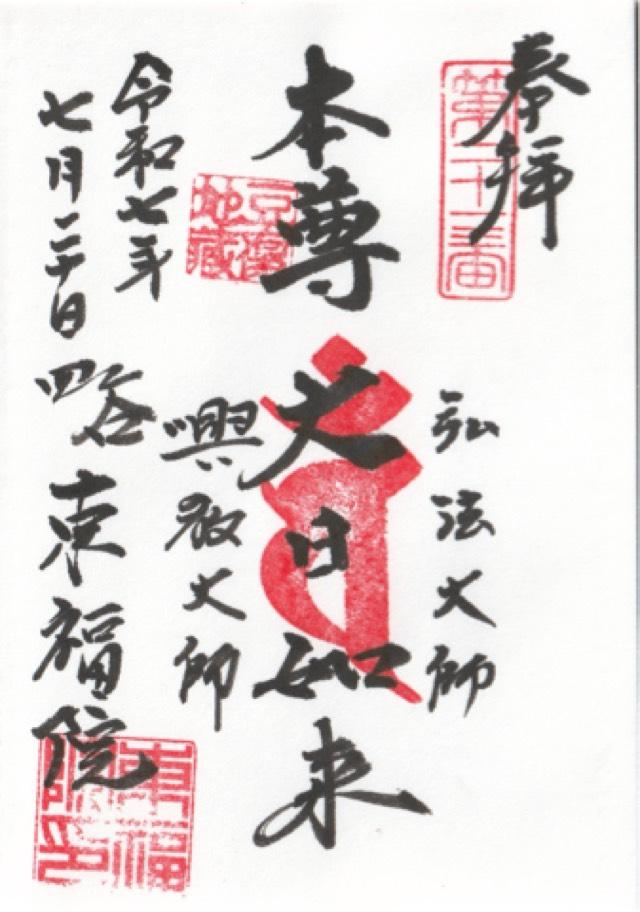 奉拝
第二十一番
弘法大師
本尊 大日如来
豆腐地蔵
興教大師
令和七年
七月二十日
四谷 東福院
東福院印